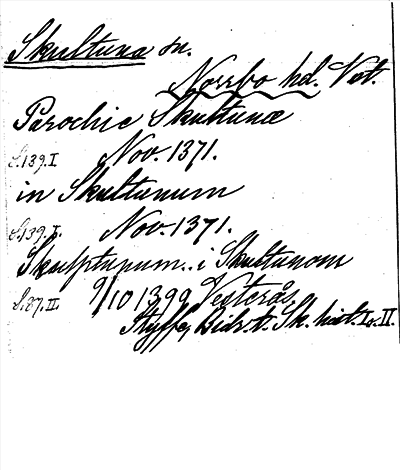 Skultuna sn.
Norrbo hd. Vst.
Parochie Skultunæ
S.139.I Nov. 1371.
in Skultunum
S.139.I. Nov. 1371.
Skulptunum.. i Skultunom
S.87.II. 9/10 1399 Vesterås
Styffe, Bidr. t. Sk. hist. I o. II.